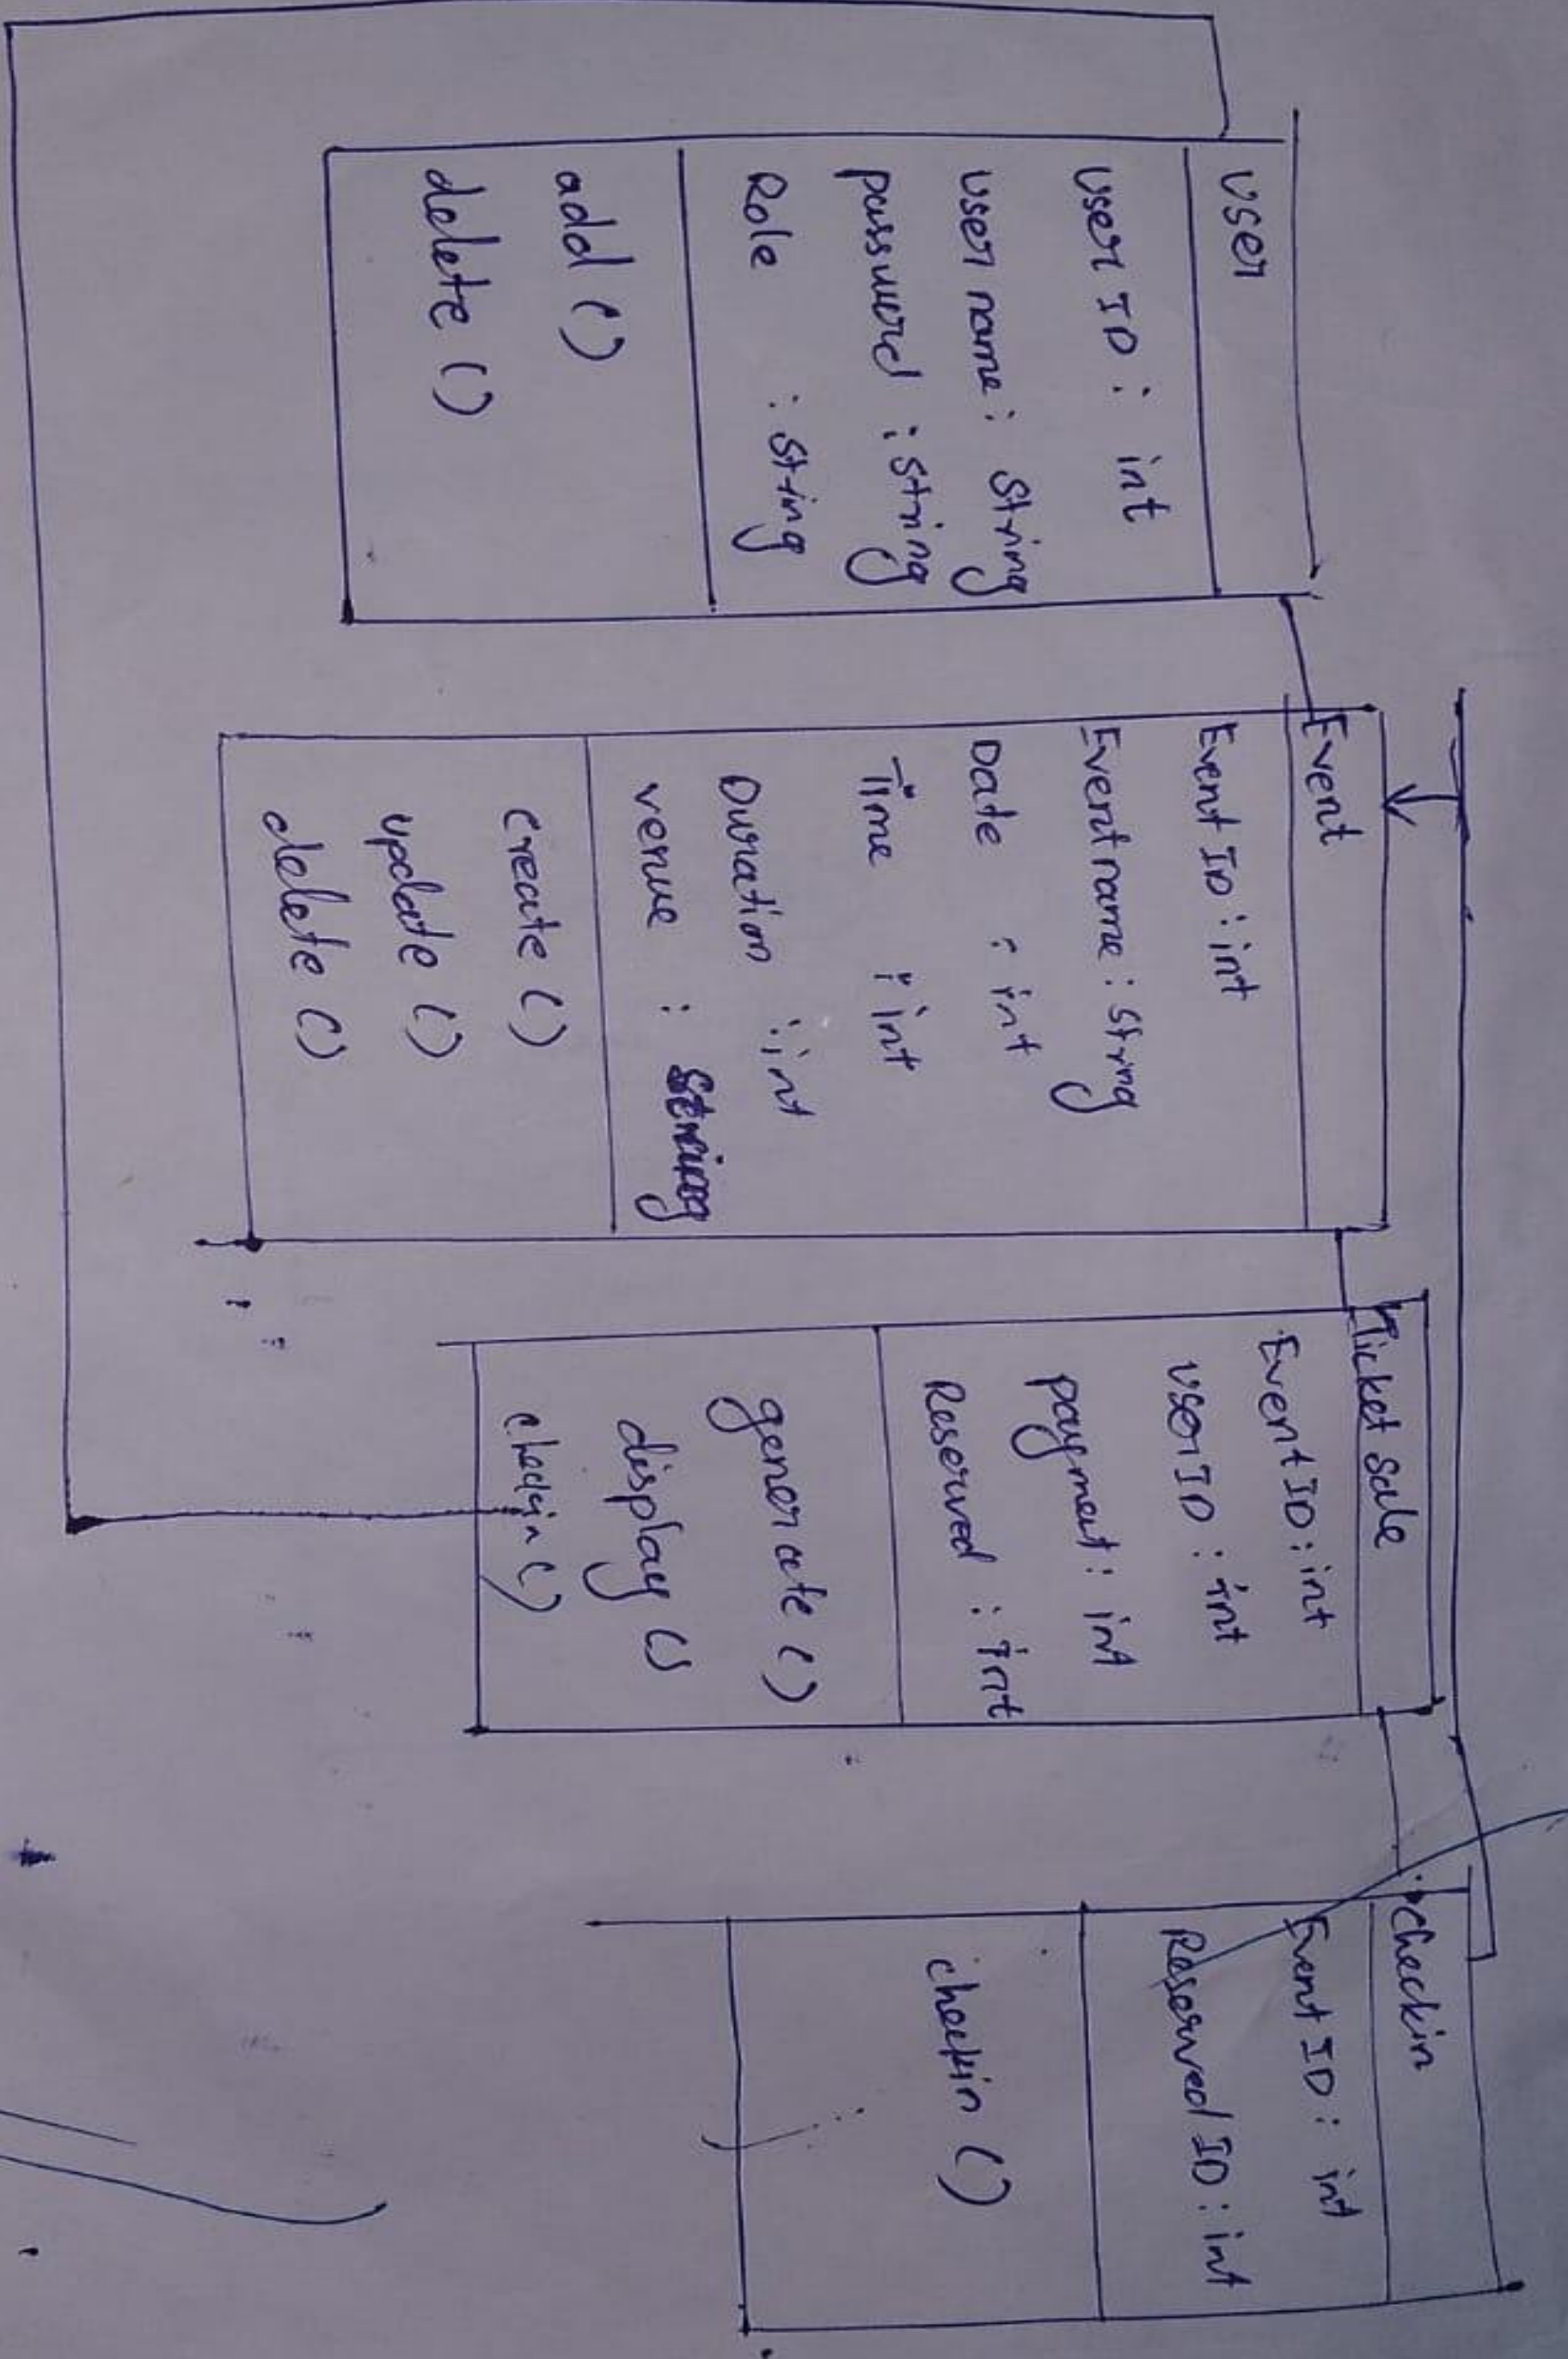 User
User ID : int
User name : String
password : String
Role : String
add ()
delete ()
Event
Event ID : int
Event name : String
Date : int
Time : int
Duration : int
venue : String
create ()
update ()
delete ()
Ticket Sale
Event ID : int
User ID : int
payment : int
Reserved : int
generate ()
display ()
checkin ()
checkin
Event ID : int
Reserved ID : int
checkin ()